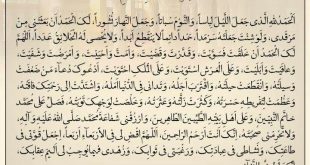 اَلْحَمْدُ لِلّٰهِ الَّذی جَعَلَ اللَّیْلَ لِباساً، وَالنَّوْمَ سُباتاً، وَجَعَلَ النَّهارَ نُشُوراً، لَکَ الْحَمْدُ اَنْ بَعَثْتَنی مِنْ
مَرْقَدی، وَلَوْ شِئْتَ جَعَلْتَهُ سَرْمَداً، حَمْداً دائِماً لا یَنْقَطِعُ اَبَداً، وَلا یُحْصی لَهُ الْخَلائِقُ عَدَداً، اَللّٰهُمَّ
لَکَ الْحَمْدُ اَنْ خَلَقْتَ فَسَوَّیْتَ، وَقَدَّرْتَ وَقَضَیْتَ، وَاَمَتَّ وَاَحْیَیْتَ، وَاَمْرَضْتَ وَشَفَیْتَ،
وَعافَیْتَ وَاَبْلَیْتَ، وَعَلَی الْعَرْشِ اسْتَوَیْتَ، وَعَلَی الْمُلْکِ احْتَوَیْتَ، اَدْعُوکَ دُعاءَ مَنْ ضَعُفَتْ
وَسیلَتُهُ، وَانْقَطَعَتْ حیلَتُهُ، وَاقْتَرَبَ اَجَلُهُ، وَتَدانی فِی الدُّنْیا اَمَلُهُ، وَاشْتَدَّتْ اِلی رَحْمَتِکَ فاقَتُهُ،
وَعَظُمَتْ لِتَفْریطِهِ حَسْرَتُهُ، وَکَثُرَتْ زَلَّتُهُ وَعَثْرَتُهُ، وَخَلُصَتْ لِوَجْهِکَ تَوْبَتُهُ، فَصَلِّ عَلی مُحَمَّدٍ
خاتَمِ النَّبِیّینَ، وَعَلی اَهْلِ بَیْتِهِ الطَّیِّبینَ الطّاهِرینَ، وَارْزُقْنی شَفاعَةَ مُحَمَّدٍ صَلَّی اللّٰهُ عَلَیْهِ وَآلِهِ،
وَلا تَحْرِمْنی صُحْبَتَهُ، اِنَّکَ اَنْتَ اَرْحَمُ الرّاحِمینَ، اَللّٰهُمَّ اقْضِ لی فِی الْاَرْبَعاءِ اَرْبَعاً، اِجْعَلْ قُوَّتی فی
طاعَتِکَ، وَنَشاطی فی عِبادَتِکَ، وَرَغْبَتی فی ثَوابِکَ، وَزُهْدی فیما یُوجِبُ لی اَلیمَ عِقابِکَ،